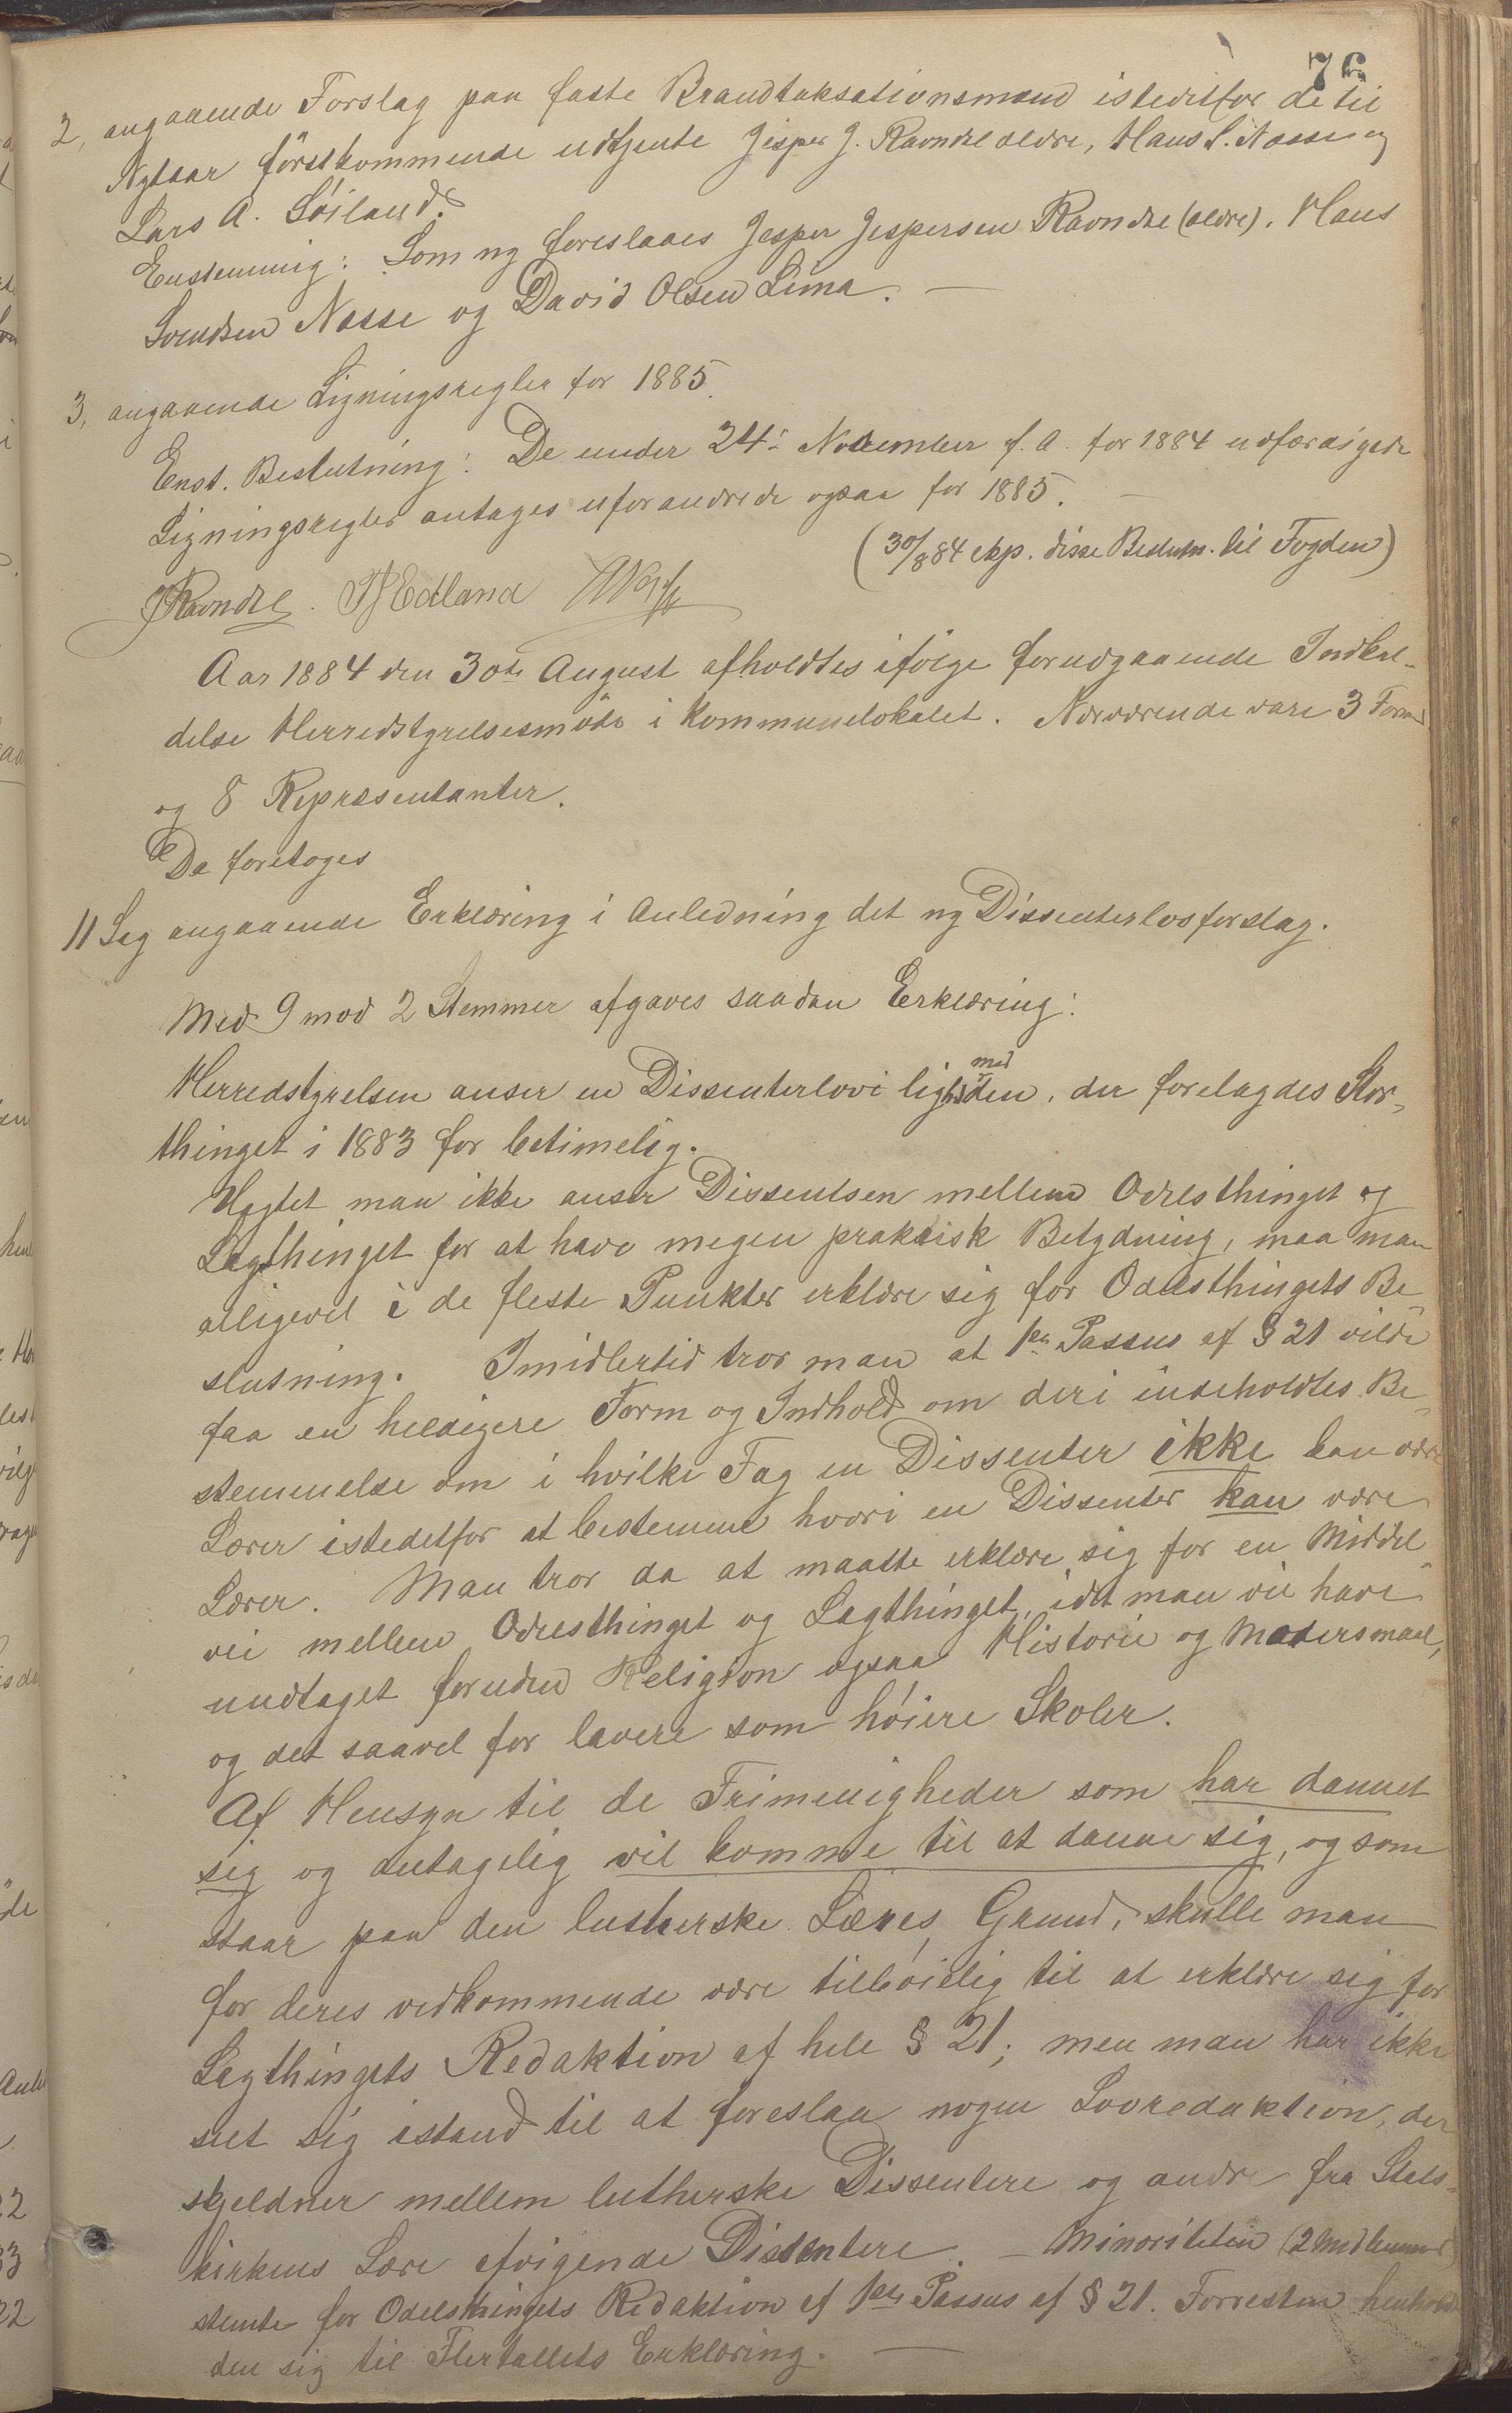 76
2, angaaende Forslag paa faste Brandtaksationsmænd istedetfor de til
Nytaar förstkommende udtjente Jesper J. Ravndal ældre, Hans S. Næsse og
Lars A. Söiland.
Enstemmig: Som ny foreslaaes Jesper Jespersen Ravndal (ældre). Hans
Svendsen Næsse og David Olsen Lima. —
3, angaaende Ligningsregler for 1885.
Enst. Beslutning: De under 24de November f. A. for 1884 udfærdigede
Ligningsregler antages uforandrede ogsaa for 1885. —
(30/8 84 exp. disse Beslutn. til Fogden)
JRavndal. Edland
Aar 1884 den 30te August afholdtes ifölge forudgaaende Indkal-
delse Herredstyrelsesmöde i Kommunelokalet. Nærværende vare 3 Form
og 8 Repræsentanter.
Da foretoges
1) Sag angaaende Erklæring i Anledning det ny Dissenterlovforslag.
Med 9 mod 2 Stemmer afgaves saadan Erklæring:
Herredstyrelsen anser en Dissenterlov i lighed med den, der forelagdes Stor-
thinget i 1883 for betimelig.
Uagtet man ikke anser Dissentsen mellem Odelsthinget og
Lagthinget for at have megen praktisk Betydning, maa man
alligevel i de fleste Punkter erklære sig for Odelsthingets Be-
slutning. Imidlertid tror man at 1ste Passus af § 21 vilde
faa en heldigere Form og Indhold om deri indeholdtes Be-
stemmelse om i hvilke Fag en Dissenter ikke kan være
Lærer istedetfor at bestemme hvori en Dissenter kan være
Lærer. Man tror da at maatte erklære sig for en Middel-
vei mellem Odelsthinget og Lagthinget, idet man vil have
undtaget foruden Religion ogsaa Historie og Modersmaal,
og det saavel for lavere som höiere Skoler.
Af Hensyn til de Frimenigheder som har dannet
sig og antagelig vil komme til at danne sig, og som
staar paa den lutherske Læres Grund, skulle man
for deres vedkommende være tilböielig til at erklære sig for
Lagthingets Redaktion af hele § 21; men man har ikke
seet sig istand til at foreslaa nogen Lovredaktion, der
skjeldner mellem lutherske Dissentere og andre fra Stats-
kirkens Lære afvigende Dissentere. — Minoriteten (2 Medlemmer)
stemte for Odelsthingets Redaktion af 1ste Passus af § 21. Forresten henholdt
den sig til Flertallets Erklæring. —